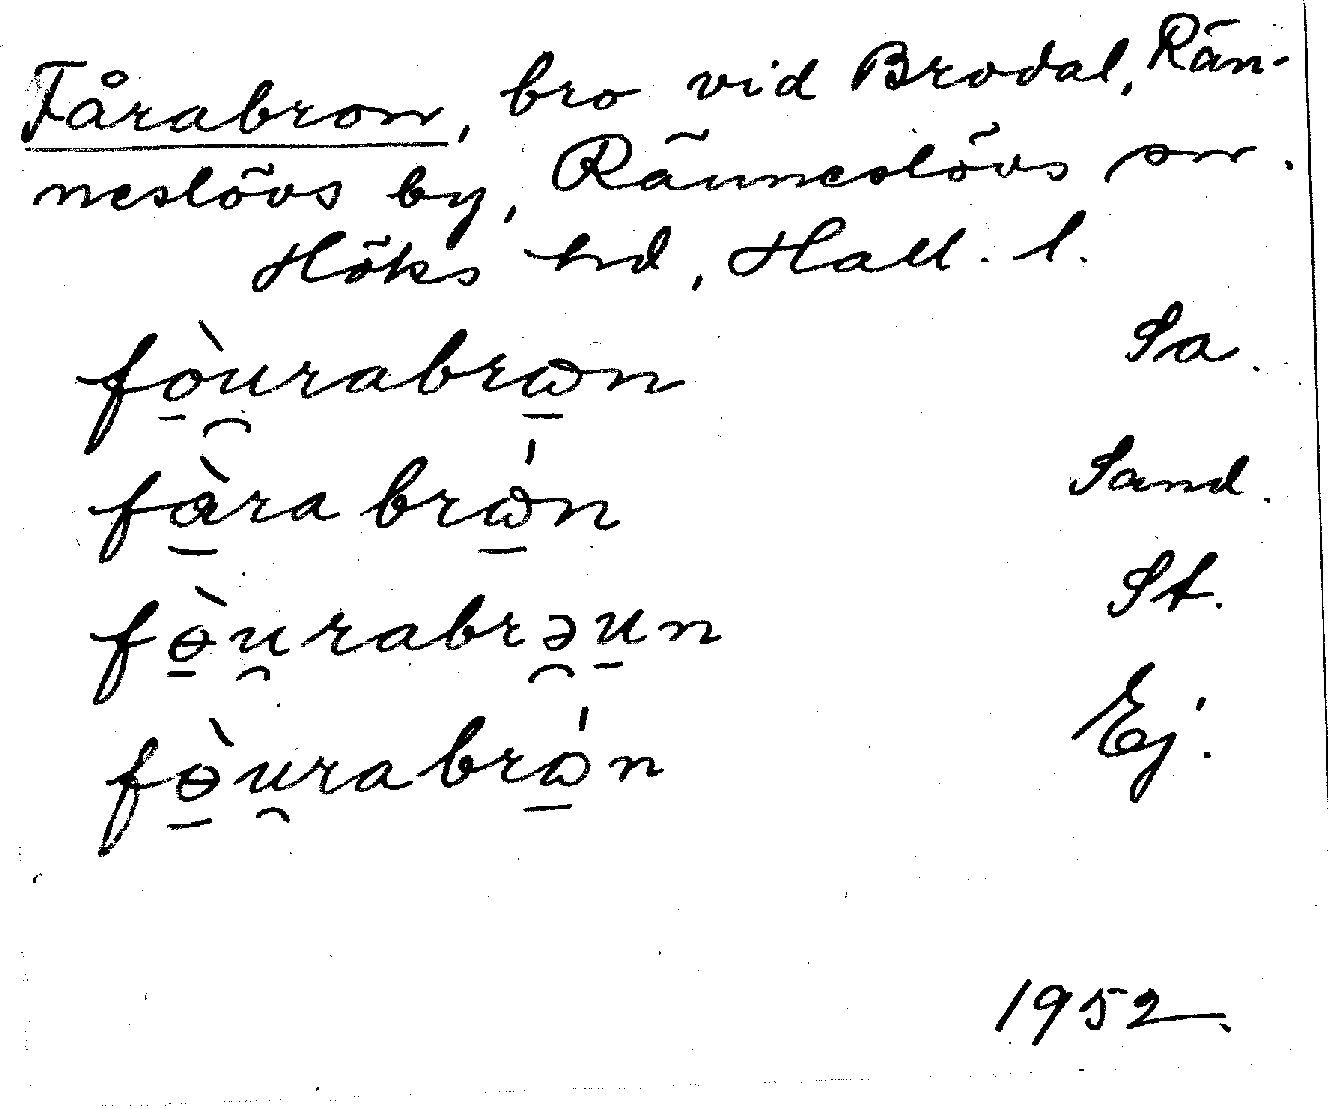 Fårabron, bro vid Brodal, Rän-
neslövs by, Ränneslövs sn.
Höks hd, Hall. l.
fò̠u̯rabrω̠n Sa.
fà̠ra brώ̠n Sand.
fɵ̠̀u̯rabrə̯u̠n St.
fɵ̠̀u̯rabrώ̠n Ej.
1952.